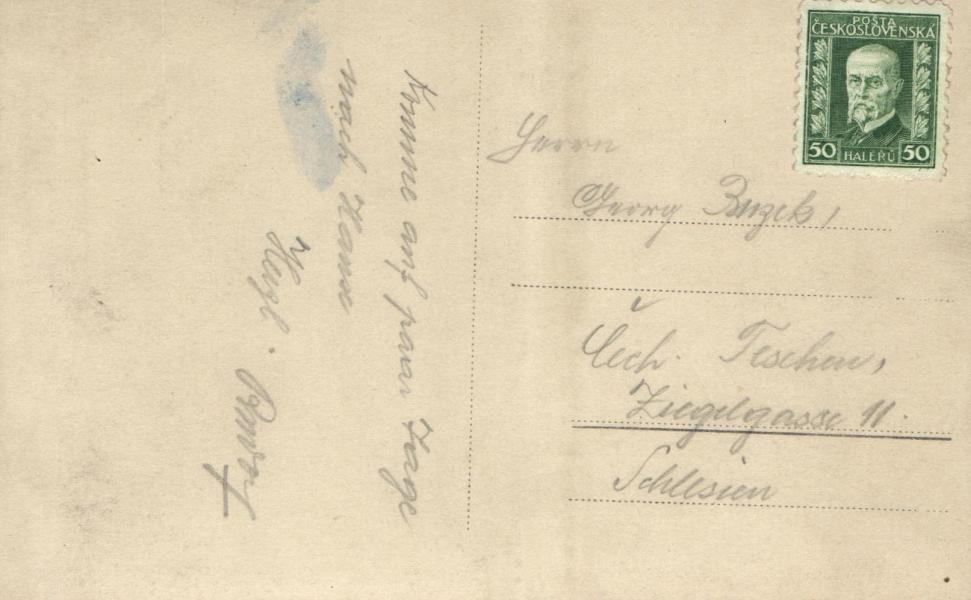 Komme auf paar Tage
nach Hause
POŠTA
ČESKOSLOVENSKÁ
50 HALÉŘŮ 50
Herrn
Georg Buzek,
Čech. Teschen,
Ziegelgasse 11.
Schlesien